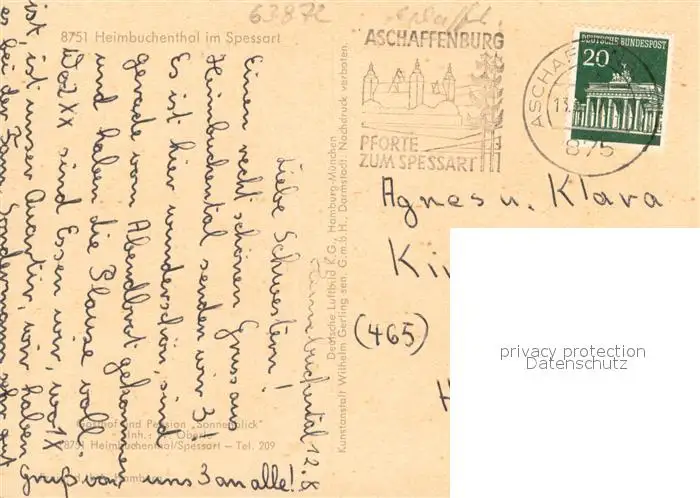 63872
8751 Heimbuchenthal im Spessart
ASCHAFFENBURG
PFORTE
ZUM SPESSART
DEUTSCHE BUNDESPOST
20
ASCHAF
13.
875
Heimbuchental 12.
Liebe Schwestern!
Einen recht schönen Gruss aus
Heimbuchental senden wir 3!
Es ist hier wunderschön, sind
gerade vom Abendbrot gekommen
und haben die Plauze voll.
Wo 2 XX sind Essen wir, wo 1 X
ist, ist unser Quartir, wir haben
es bei der Fam. sehr gut
Gruß von uns 3 an alle!
Deutsche Luftbild K.G., Hamburg-München
Kunstanstalt Wilhelm Gerling sen. G.m.b.H., Darmstadt. Nachdruck verboten.
Gasthof und Pension „Sonnenblick"
Inh.: Oberle
8751 Heimbuchenthal/Spessart — Tel. 209
Agnes u. Klara
Ki
(465)
H
privacy protection
Datenschutz